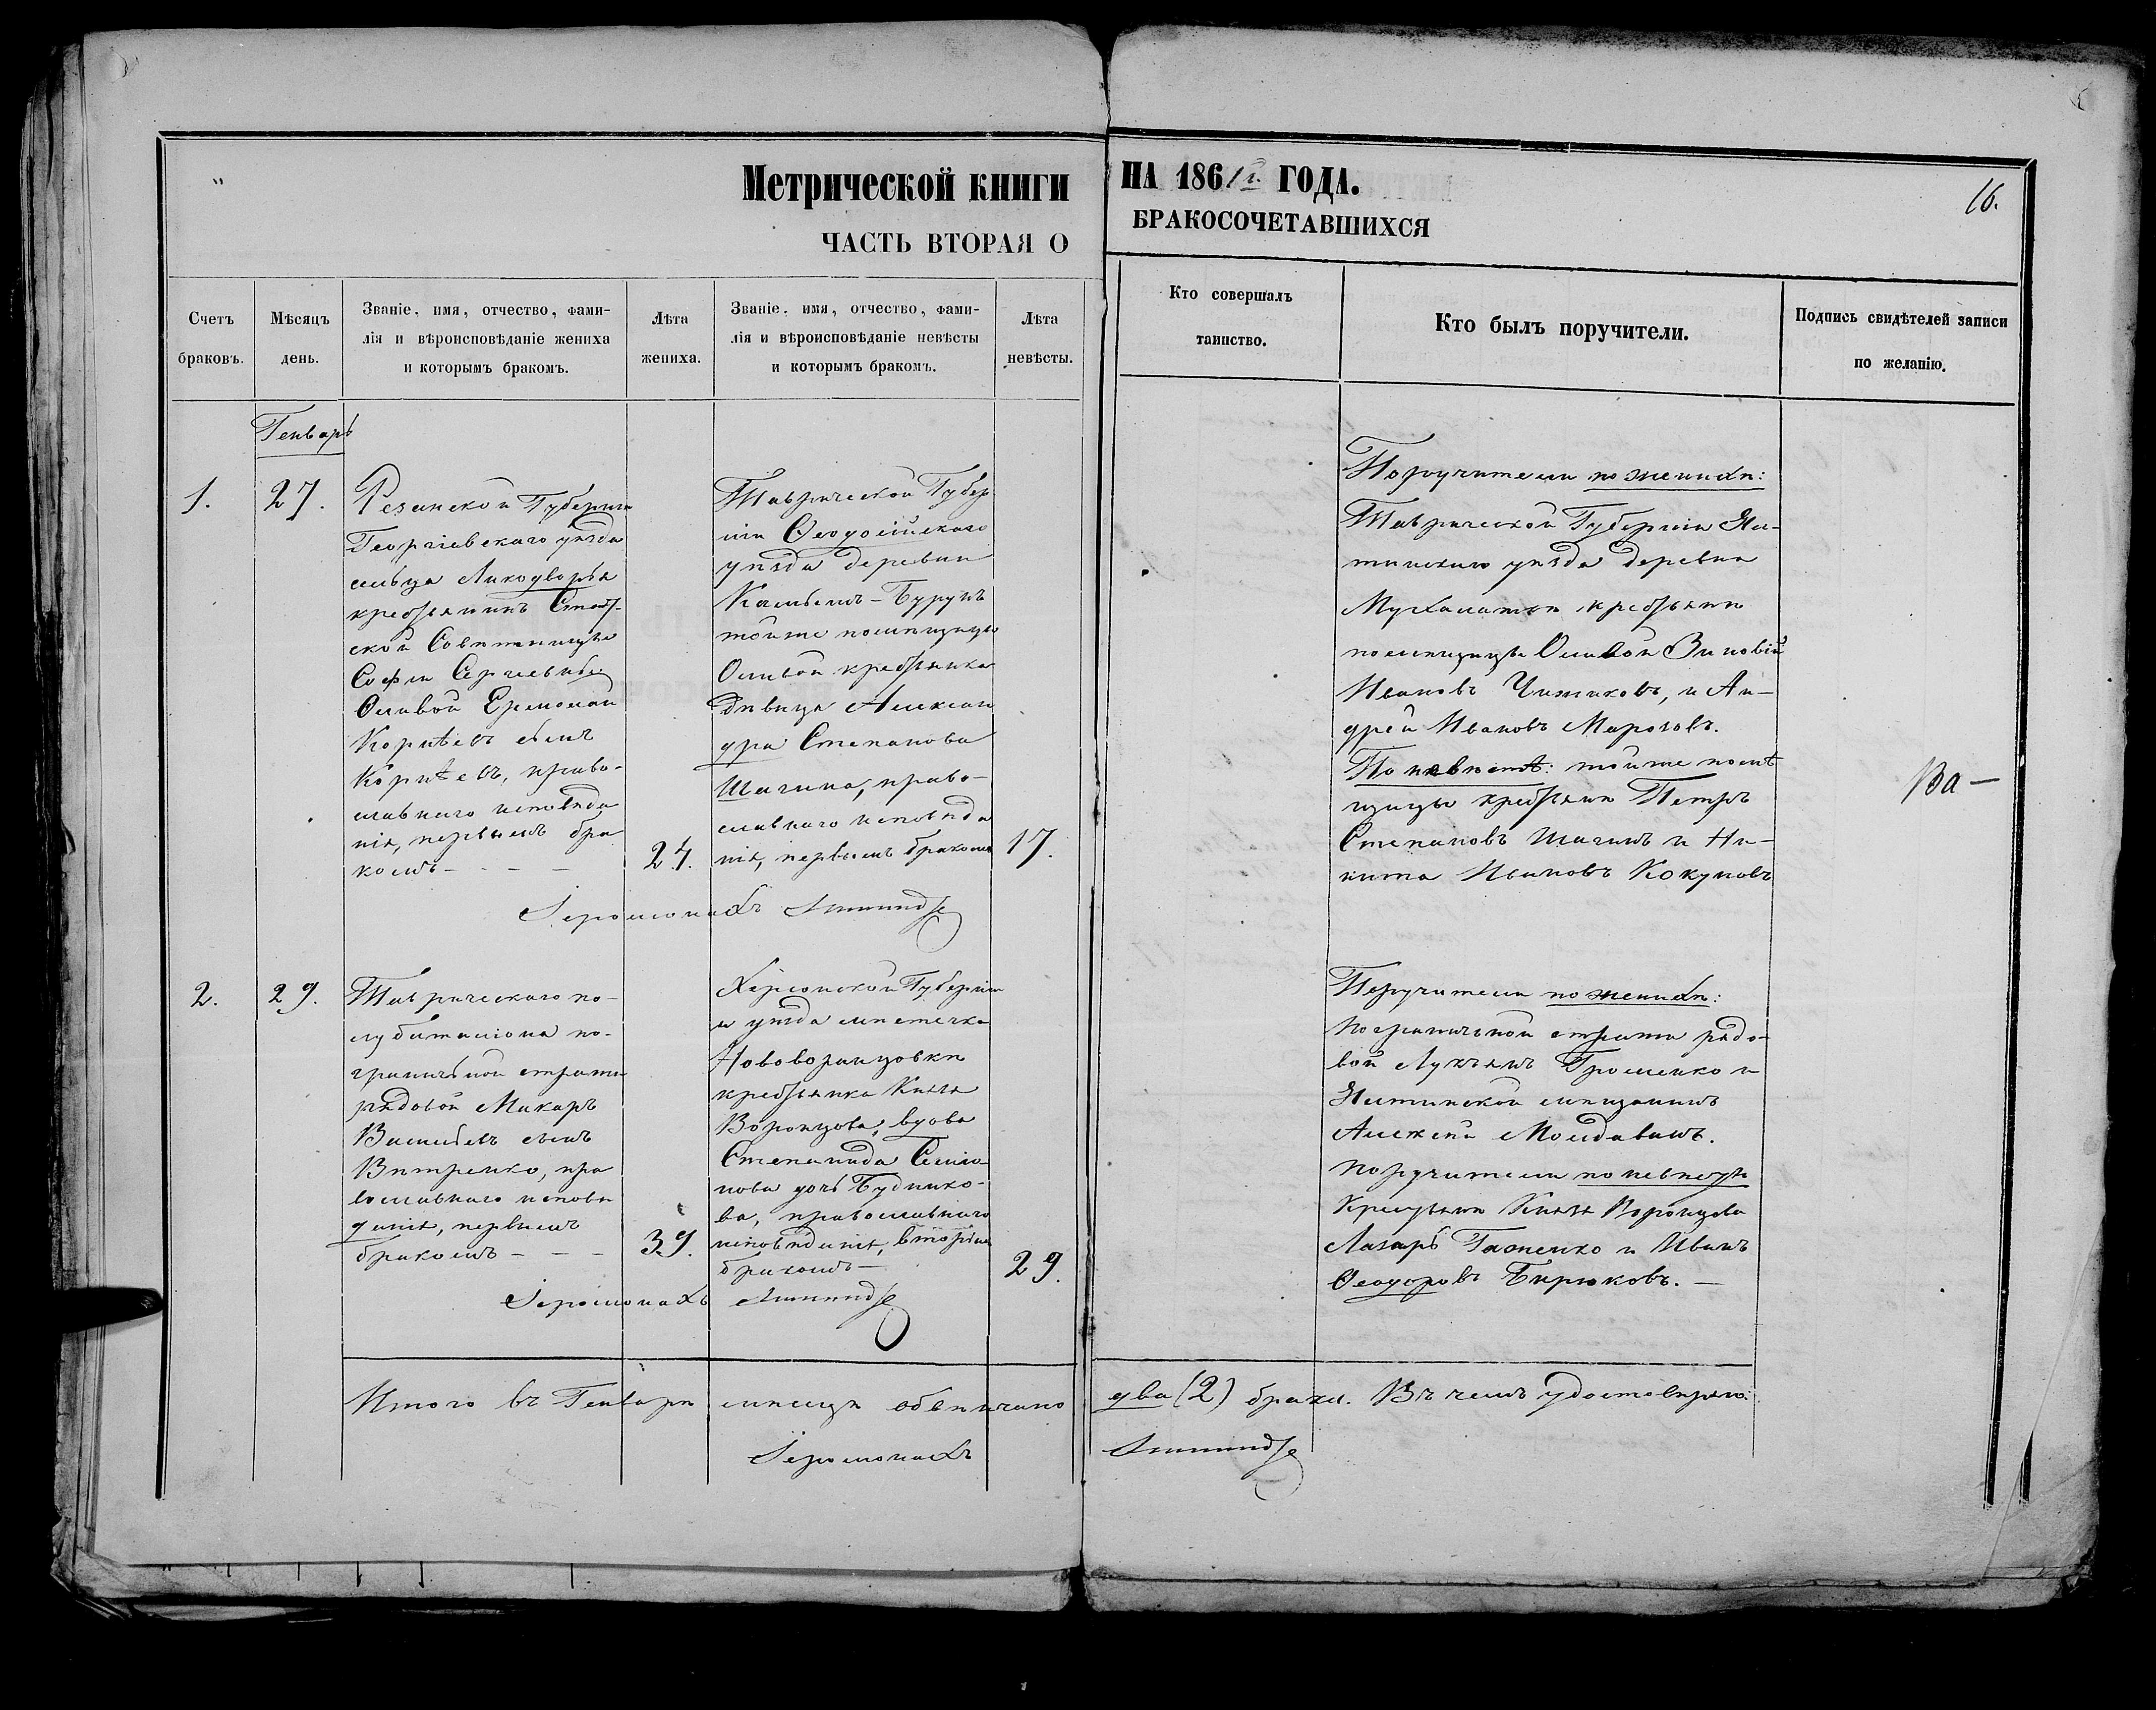 Метрической книги
НА 1861 г. ГОДА.
16.
ЧАСТЬ ВТОРАЯ О
БРАКОСОЧЕТАВШИХСЯ
Счетъ
браковъ.
Мѣсяцъ
день.
Званіе, имя, отчество, фами-
лія и вѣроисповѣданіе жениха
и которымъ бракомъ.
Лѣта
жениха.
Званіе, имя, отчество, фами-
лія и вѣроисповѣданіе невѣсты
и которымъ бракомъ.
Лѣта
невѣсты.
Кто совершалъ
таинство.
Кто былъ поручители.
Подпись свидѣтелей записи
по желанію.
Генварь
1.
27.
Резанской Губерніи
Георгіевскаго уѣзда
сельца
крестьянинъ Статс-
ской Совѣтницы
Софіи Сергіевны
Ермолай
Корнѣевъ сынъ
Корнѣевъ, право-
славнаго исповѣда
нія, первымъ бра
комъ - - -
24.
Таврической Губер
ніи Ѳеодосійскаго
уѣзда деревни
Бурунъ
тойже помѣщицы
крестьянка
дѣвица Алексан
дра Степанова
Шагина, право-
славнаго исповѣда
нія, первымъ бракомъ
17.
Іеромонахъ
Поручители по женихѣ:
Таврической Губерніи Ял-
тинскаго уѣзда деревни
Мухалатки крестьяне
помѣщицы Зиновій
Ивановъ Чижиковъ, и Ан-
дрей Ивановъ Марозовъ.
По невѣстѣ: тойже помѣ
щицы крестьяне Петръ
Степановъ Шагинъ и Ни-
кита Ивановъ Кокуновъ
2.
29.
Таврическаго по-
лубаталіона по-
граничной стражи
рядовой Макаръ
Васильевъ сынъ
Вѣтренко, пра
вославнаго исповѣ
данія, первымъ
бракомъ - - -
39.
Херсонской Губерніи
и уѣзда мѣстечка
Нововоронцовки
крестьянка Князя
Воронцова, вдова
Степанида Семіо-
нова дочь Буднико-
ва, православнаго
исповѣданія, вторымъ
бракомъ -
29.
Іеромонахъ
Поручители по женихѣ:
пограничной стражи рядо-
вой Лукьянъ Громенко и
Ялтинской мѣщанинъ
Алексѣй Молдаванъ.
Поручители по невѣстѣ
Крестьяне Князя Воронцова
Лазарь Гапенко и Иванъ
Ѳеодоровъ Бирюковъ. -
Итого въ Генварѣ мѣсяцѣ обвѣнчано два (2) брака. Въ чемъ удостовѣряю:
Іеромонахъ